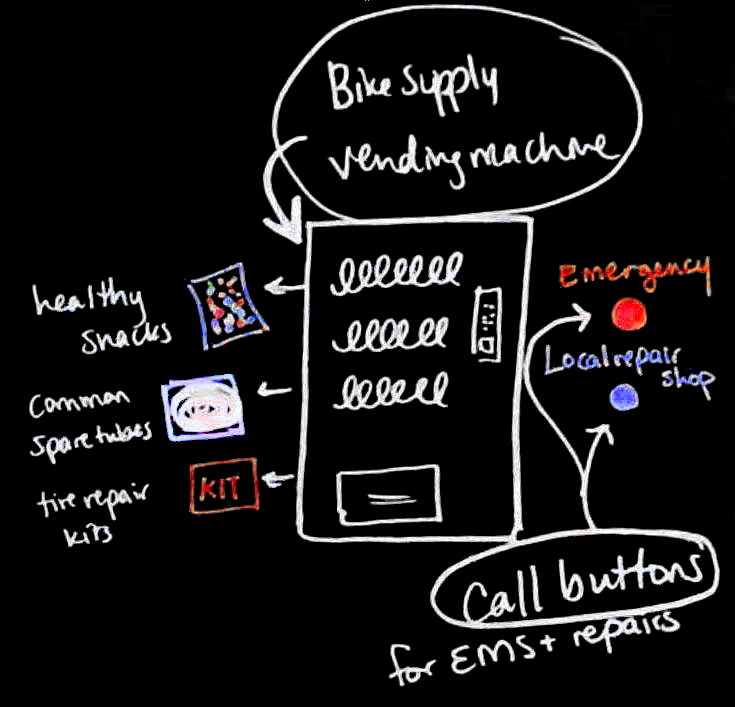 Bike Supply
vending machine
healthy
snacks
Common
spare tubes
tire repair
kits
KIT
Emergency
Local repair
shop
Call buttons
for EMS + repairs